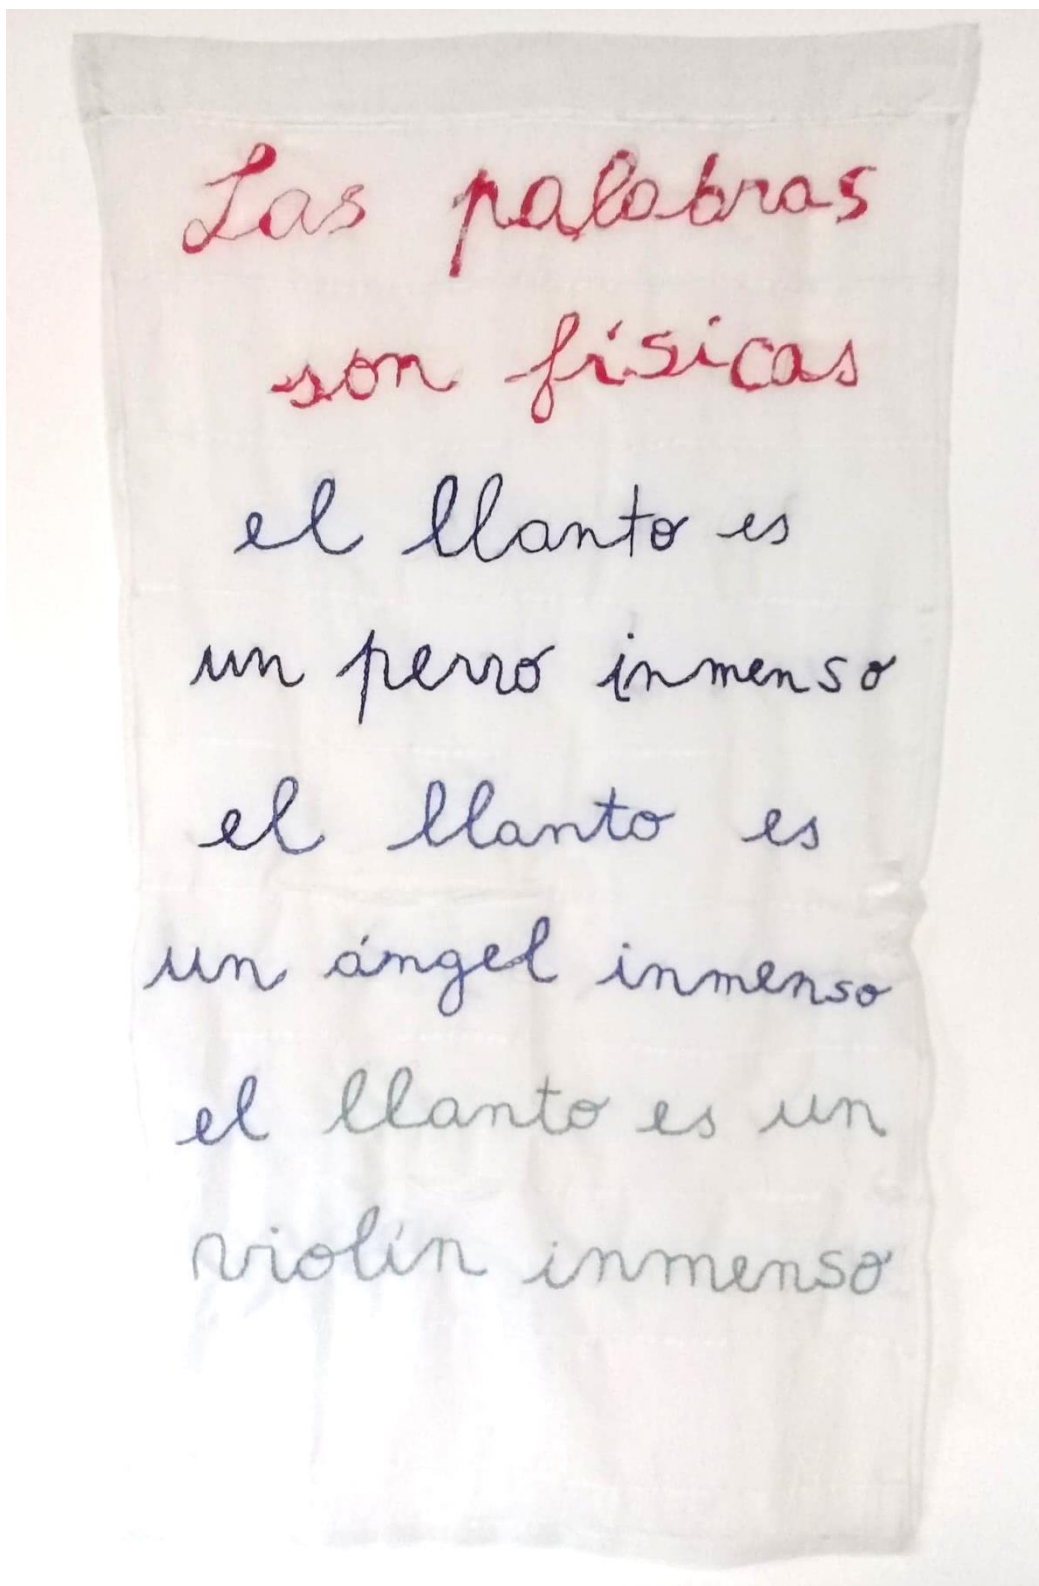 Las palabras
son físicas
el llanto es
un perro inmenso
el llanto es
un ángel inmenso
el llanto es un
violín inmenso